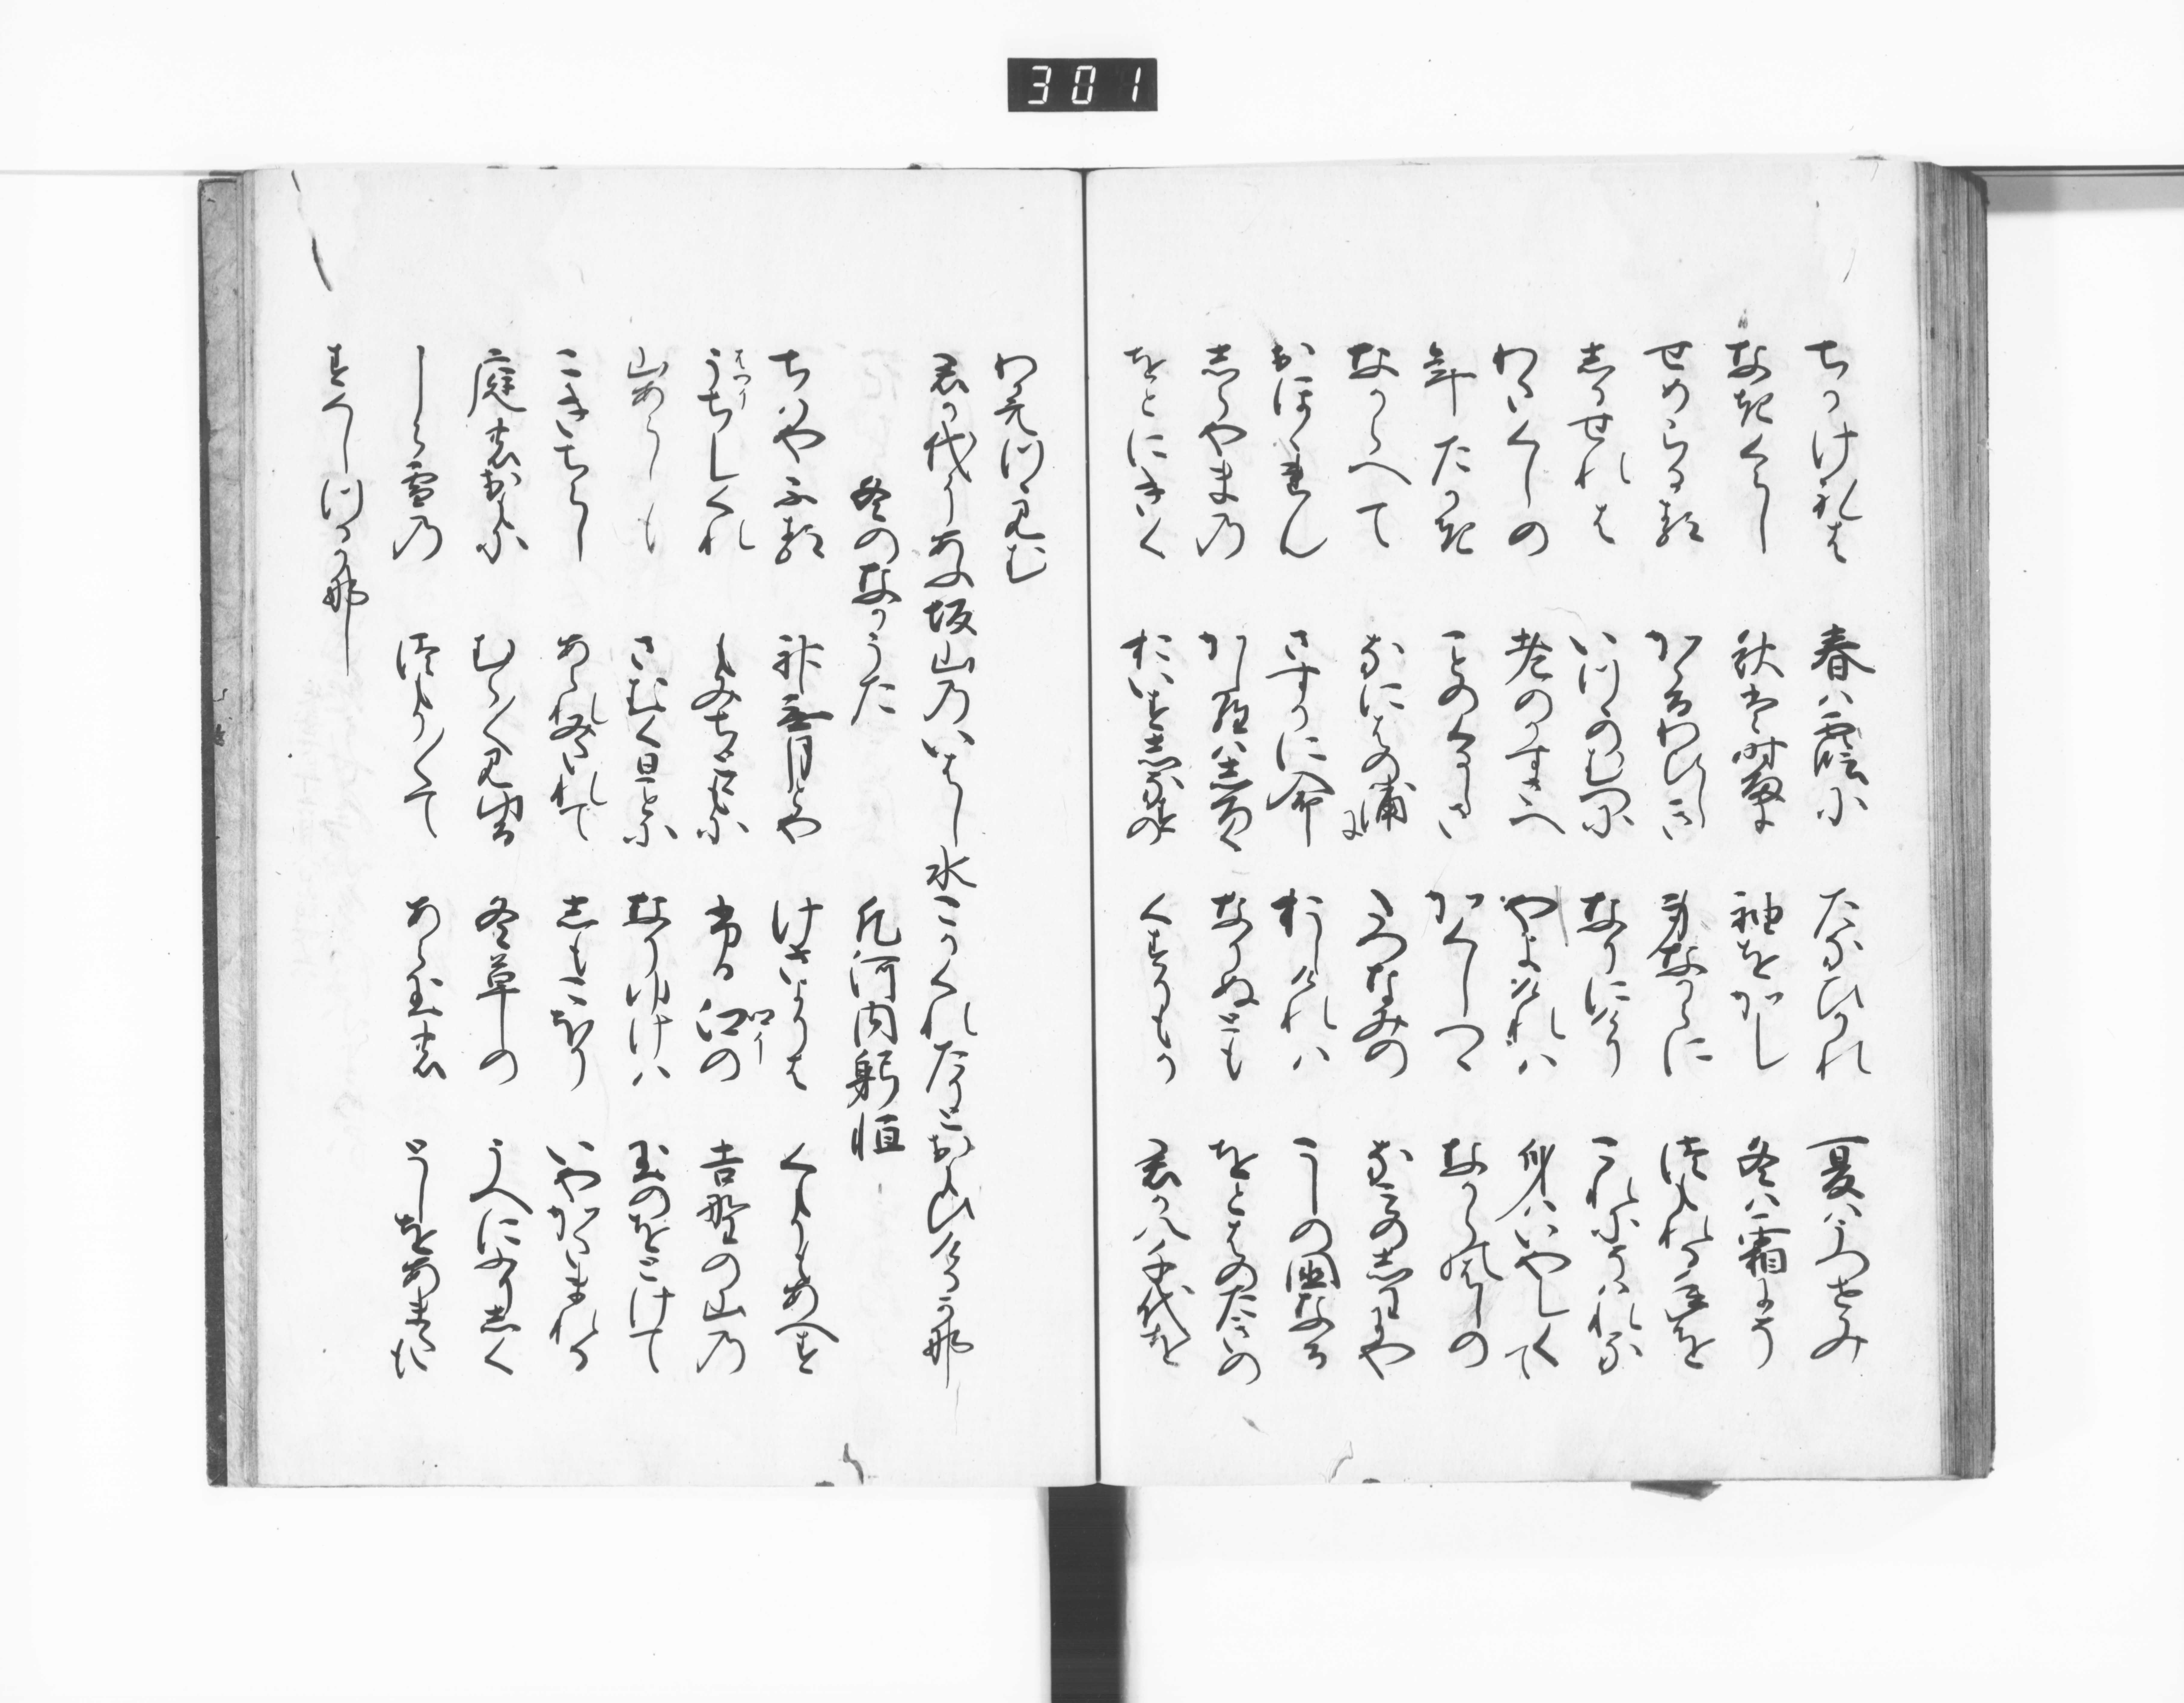 301
ちかけれは 春は霞に たなひかれ 夏はうつせみ
なきくらし 秋は時雨に 袖をかし 冬は霜にそ
せめらるる かゝるわひしき 身なからに つもれる年を
しるせれは いつゝのむつに なりにけり これにそはれる
わたくしの 老のかすさへ やよけれは 身はいやしくて
年たかき ことのくるしさ かくしつゝ なからの橋の
なからへて なにはの浦に たつなみの なみのしわにや
おほゝれん さすかに命 おしけれは こしの国なる
しらやまの かしらはしろく なりぬとも をとはのたきの
をとにきく おいすしなすの くすりもか 君か八千代を
わかえつゝ見む
君か代にあふ坂山のいはし水こかくれたりとおもひけるかな
冬のなかうた 凡河内躬恒
ちはやふる 神無月とや けさよりは くもりもあへす
はつイ
うちしくれ もみちとともに ふる江の 吉野の山の
ロイ
山あらしも さむく日ことに なりゆけは 玉のをとけて
こきちらし あられみたれて しもこほり いやかたまれる
庭のおもに むら〳〵見ゆる 冬草の うへにふりしく
しら雪の つもり〳〵て あら玉の としをあまたに
すくしつるかな